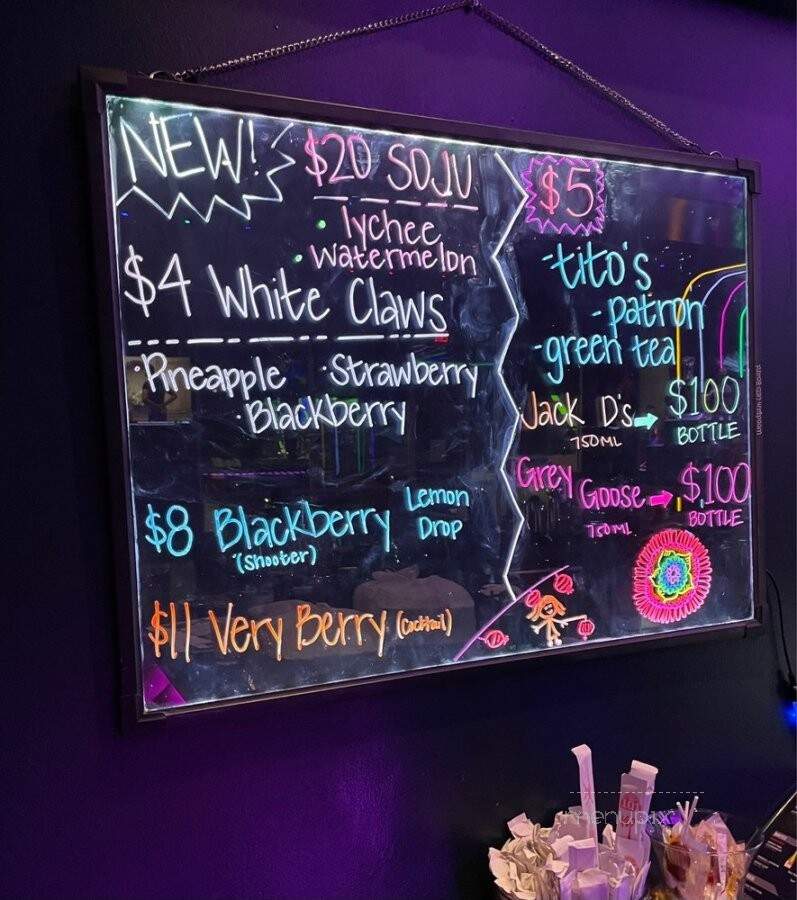 NEW!
$20 SOJU
• lychee
• watermelon
$4 White Claws
•Pineapple •Strawberry
•Blackberry
$8 Blackberry Lemon Drop
(Shooter)
$11 Very Berry (Cocktail)
$5
-tito's
-patron
-green tea
Jack D's → $100
750ML BOTTLE
Grey Goose → $100
750ML BOTTLE
menupix